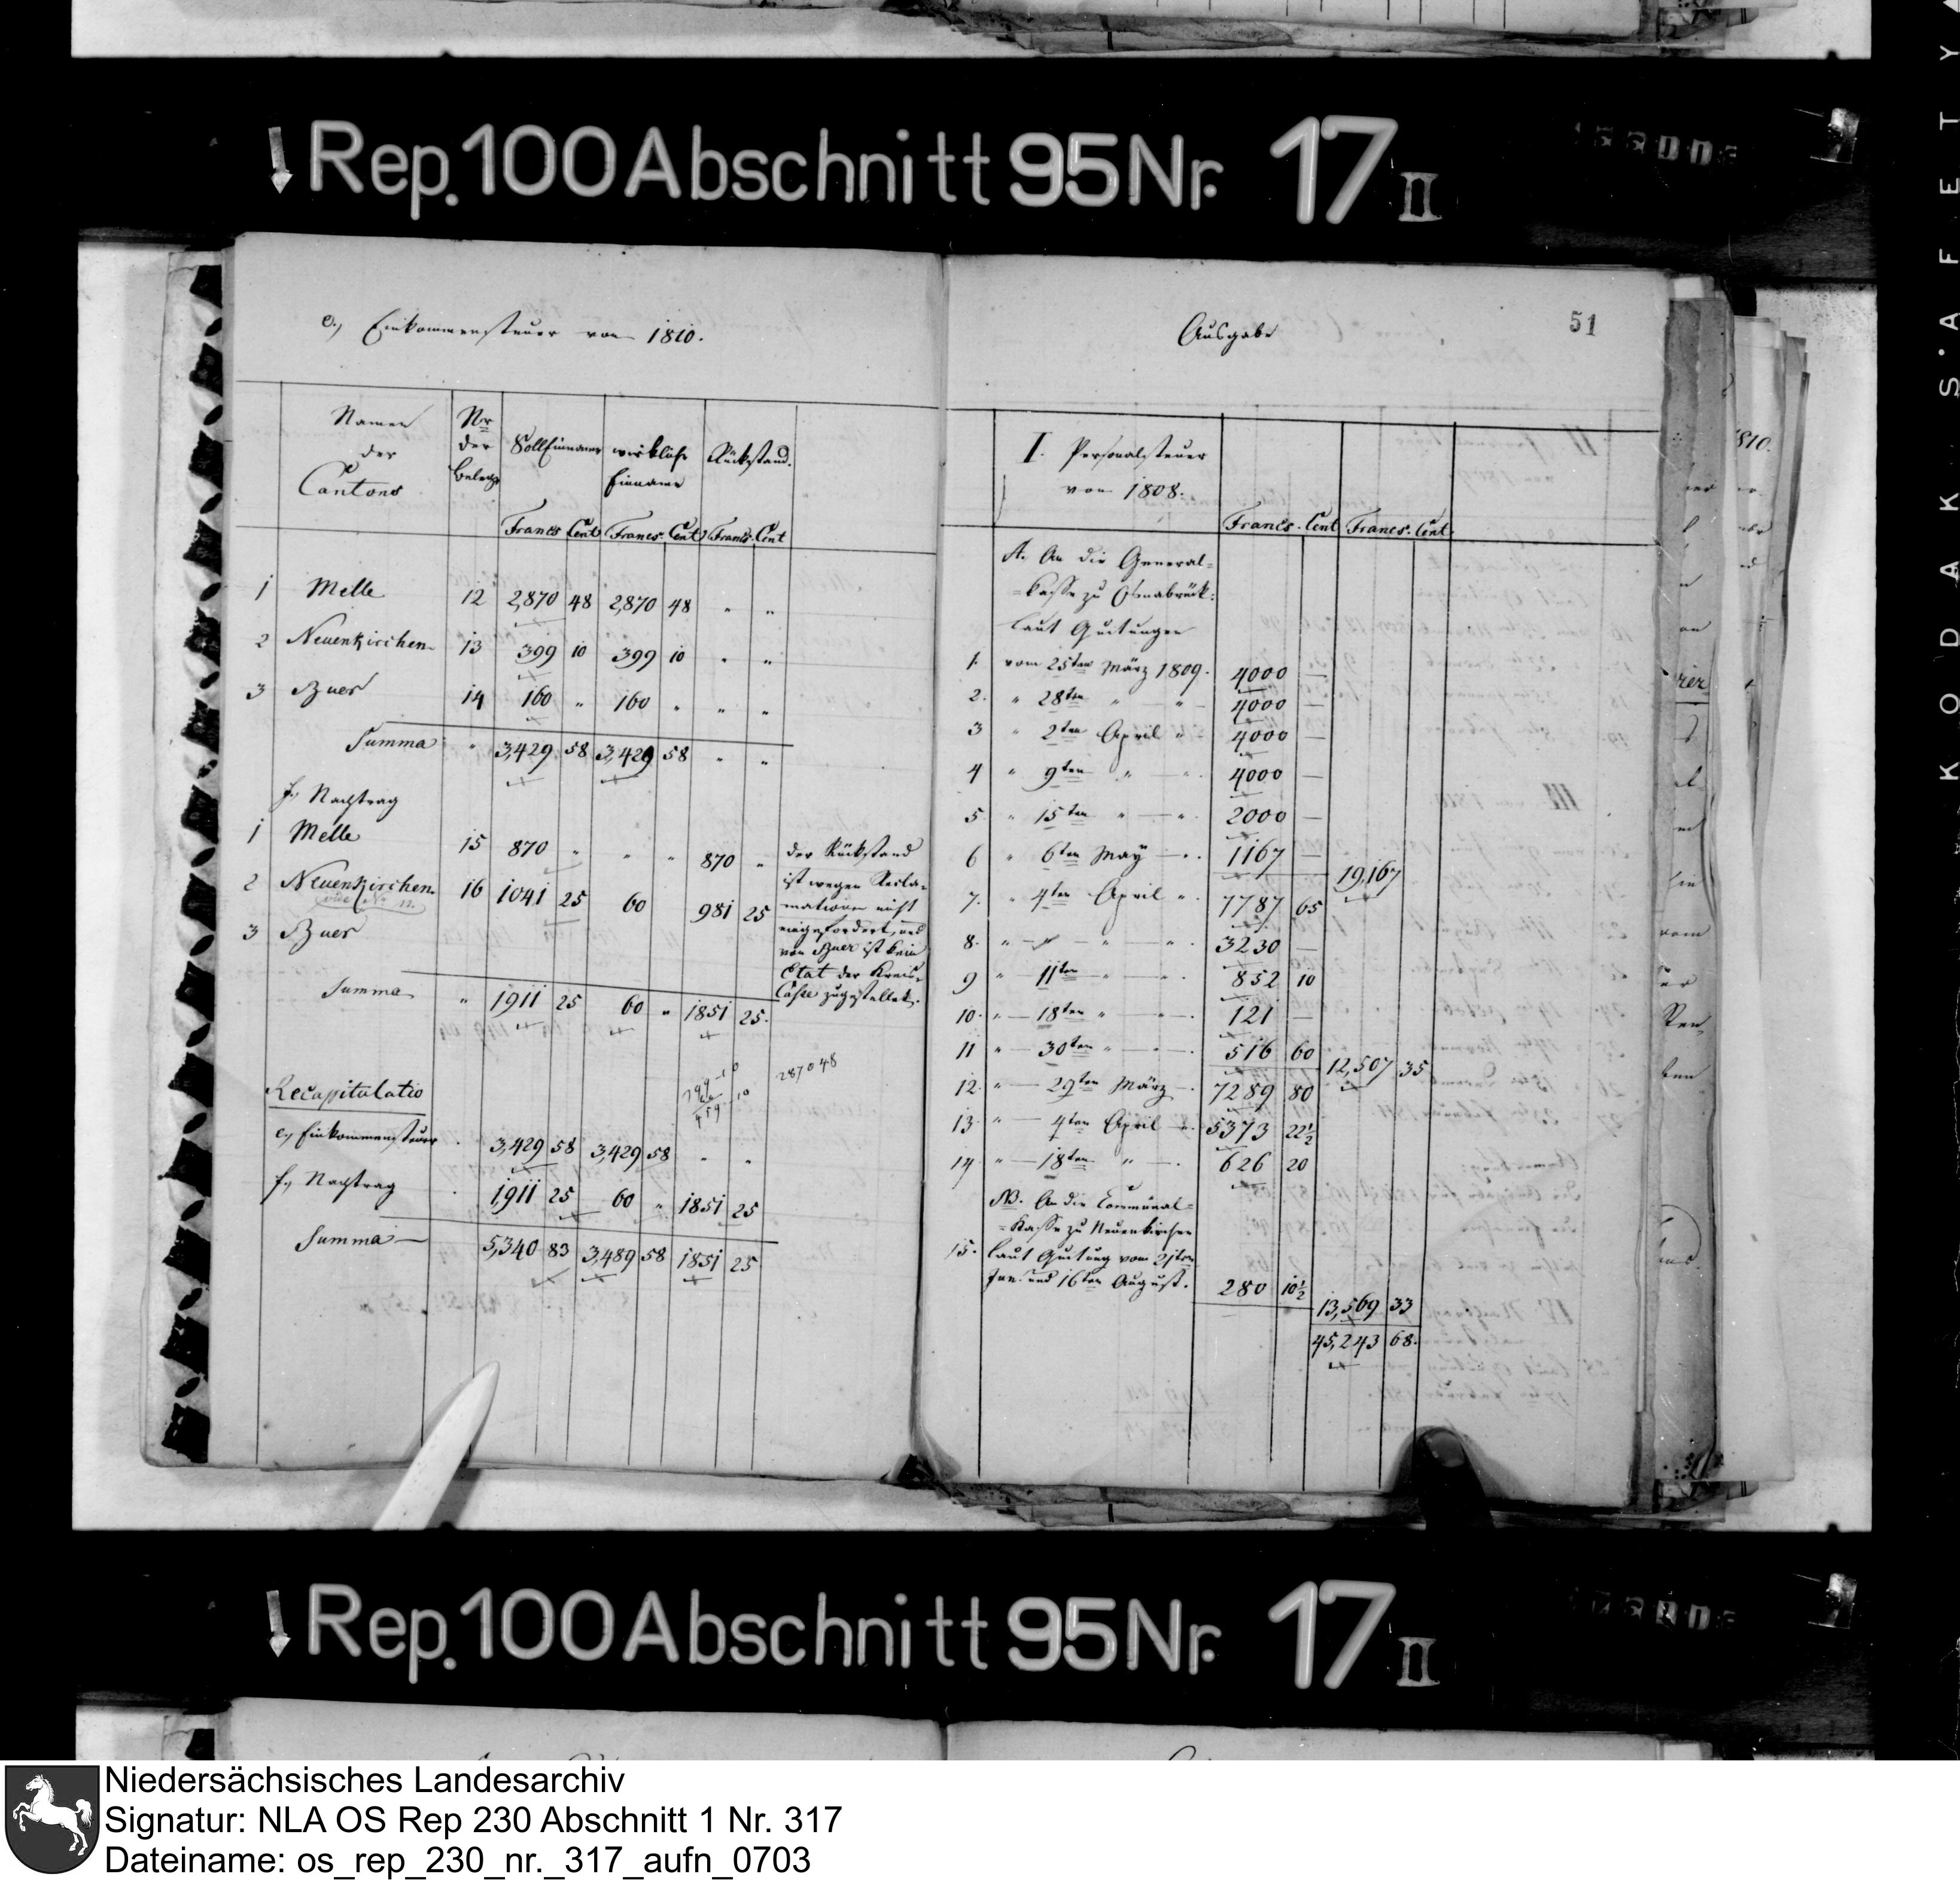 Rep. 100 Abschnitt 95 Nr. 17 II
e., Einkommensteuer von 1810.
Namen der Cantons | Nr der Belege | SollEinname | wirkliche Einname | Rückstand.
Francs Cent | Francs. Cent | Francs. Cent
1 Melle 12 2,870 48 2,870 48 " "
2 Neuenkirchen 13 399 10 399 10 " "
3 Buer 14 160 " 160 " " "
Summa " 3,429 58 3,429 58 " "
f., Nachtrag
1 Melle 15 870 " " " 870 "
2 Neuenkirchen 16 1041 25 60 981 25
3 Buer
der Rückstand
ist wegen Recla-
mationen nicht
eingefordert, und
von Buer ist kein
Etat der Kreis-
Casse zugestellet.
Summa " 1911 25 60 " 1851 25.
2870 48
Recapitulatio
e., Einkommensteuer 3,429 58 3,429 58 " "
f., Nachtrag 1,911 25 60 " 1851 25
Summa 5,340 83 3,489 58 1851 25
Ausgabe
51
I. Personalsteuer
von 1808.
Francs. Cent Francs. Cent.
A. An die General-
=Casse zu Osnabrück:
laut Quitungen
1. vom 25ten März 1809. 4000 —
2. " 28ten " — " 4000 —
3 " 2ten April " 4000 —
4 " 9ten " — " 4000 —
5 " 15ten " — " 2000 —
6 " 6ten May — " 1167 — 19,167
7. " 4ten April " 7787 65
8. " — " — " — " 3230 —
9 " — 11ten " — " 852 10
10. " — 18ten " — " 121 —
11 " — 30ten " — " 516 60 12,507 35
12. " — 29ten März — 7289 80
13. " — 4ten April — " 5373 22½
14 " — 18ten " — . 626 20
B. An die Communal-
=Kasse zu Neuenkirchen
15. laut Quitung vom 21ten
Jan. und 16ten August. 280 10½
13,569 33
45,243 68.
Rep. 100 Abschnitt 95 Nr. 17 II
KODAK S.AFETY
Niedersächsisches Landesarchiv
Signatur: NLA OS Rep 230 Abschnitt 1 Nr. 317
Dateiname: os_rep_230_nr._317_aufn_0703